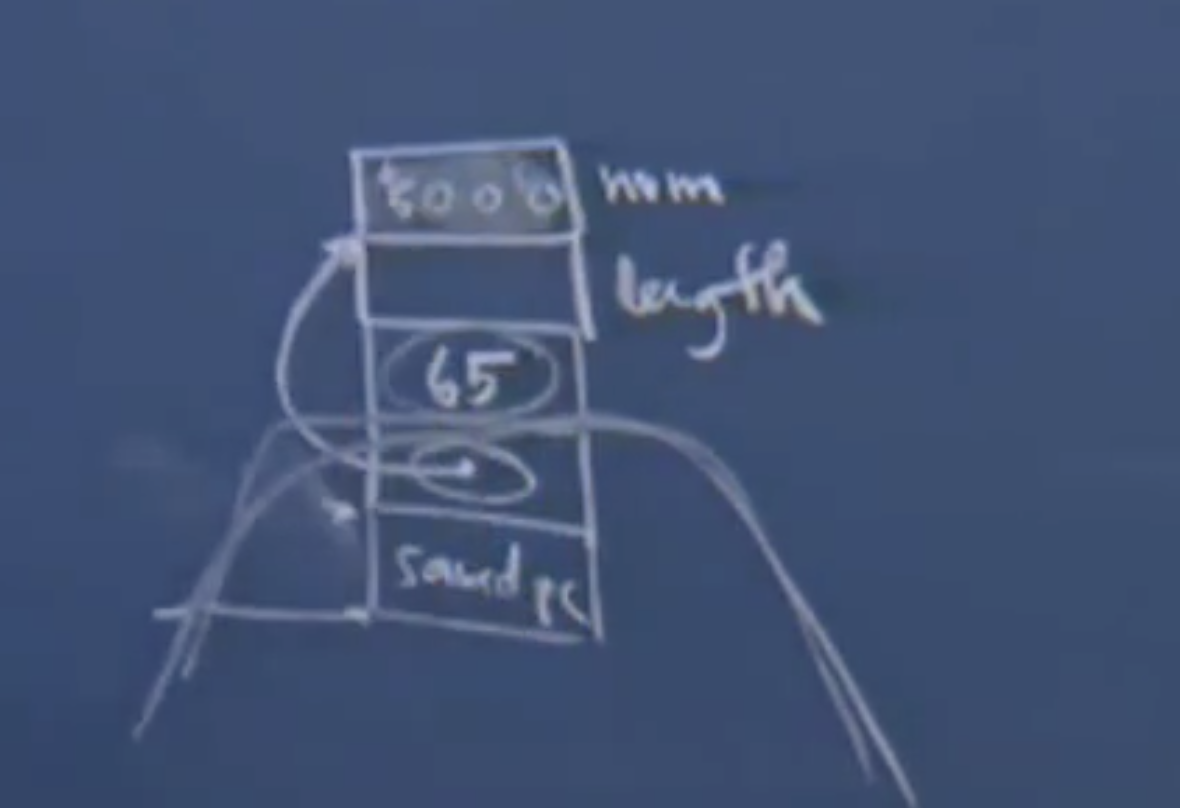 num
length
65
saved pc